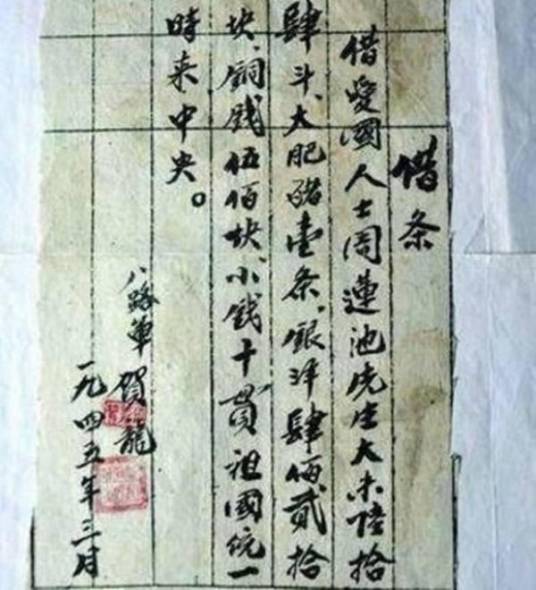 借条
借愛國人士周蓮池先生大米陸拾
肆斗、大肥豬壹条、銀洋肆佰贰拾
块、銅錢伍佰块、小錢十貫祖國统一
時来中央。
八路軍 賀龍
一九四五年三月